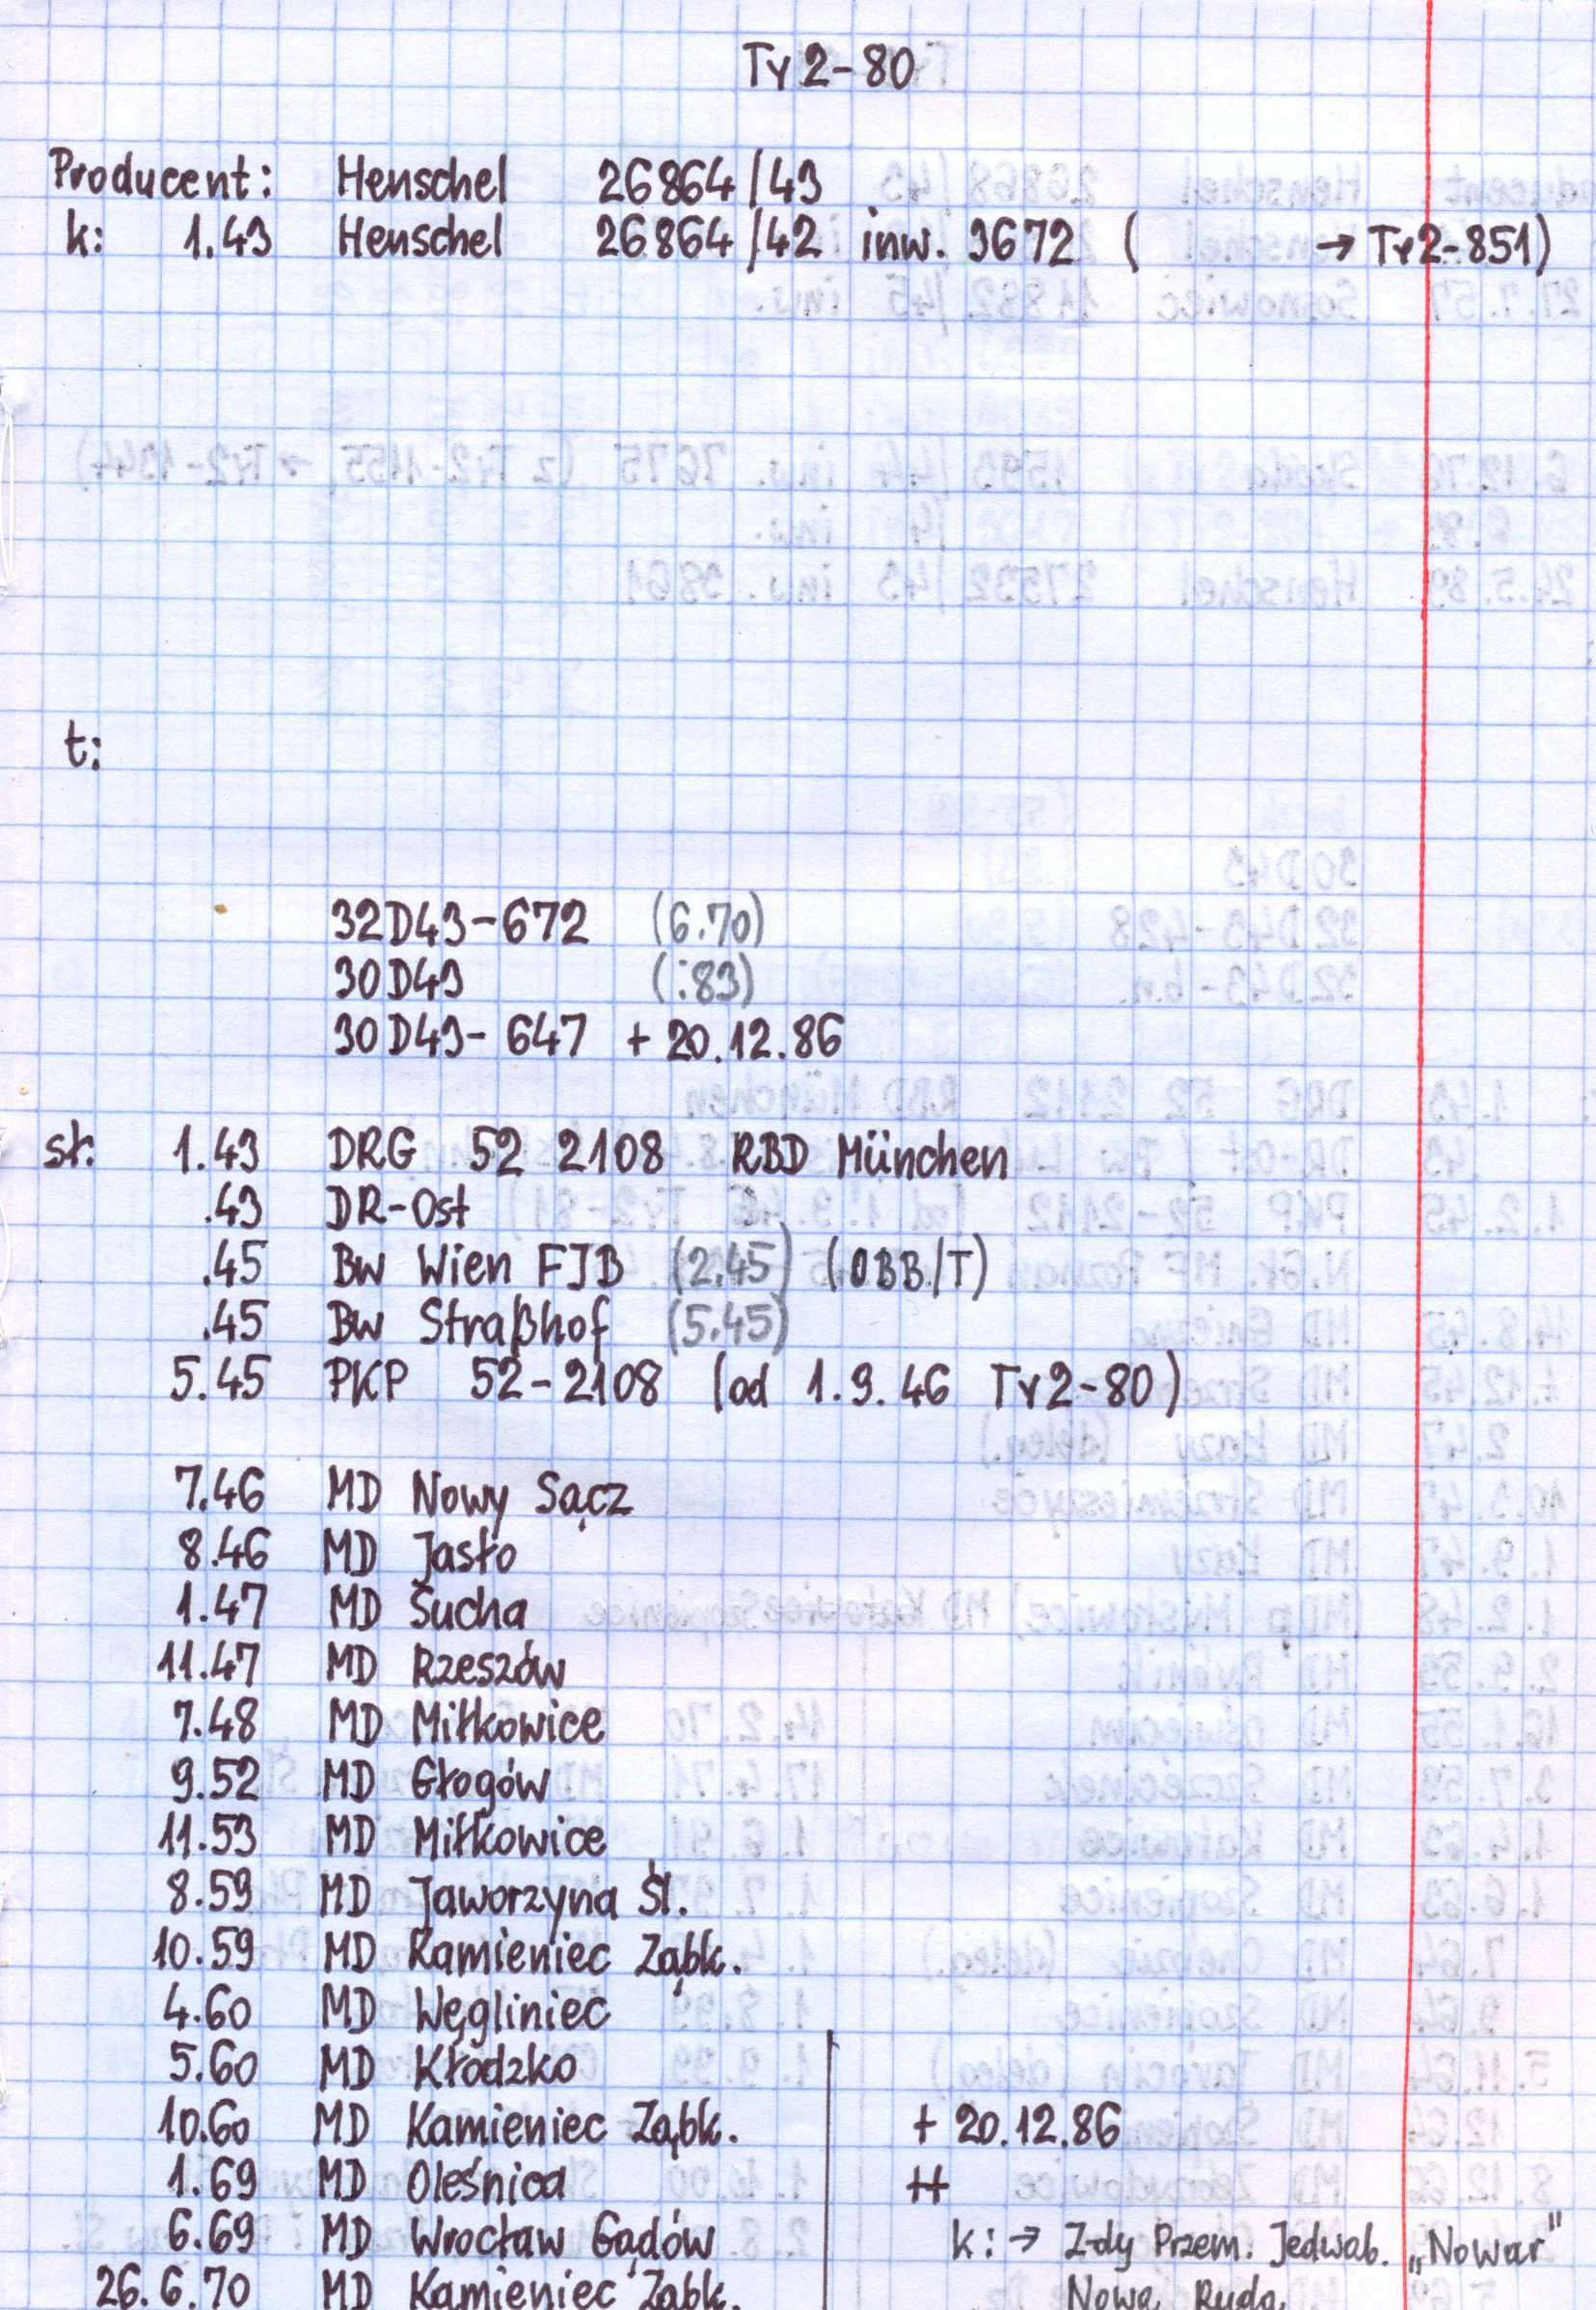 Ty2-80
Producent: Henschel 26864/43
k: 1.43 Henschel 26864/42 inw. 3672 ( → Ty2-851)
t:
32D43-672 (6.70)
30D43 (.83)
30D43-647 + 20.12.86
st: 1.43 DRG 52 2108 RBD München
.43 DR-Ost
.45 Bw Wien FJB (2.45) (ÖBB/T)
.45 Bw Straßhof (5.45)
5.45 PKP 52-2108 (od 1.9.46 Ty2-80)
7.46 MD Nowy Sącz
8.46 MD Jasło
1.47 MD Sucha
11.47 MD Rzeszów
7.48 MD Miłkowice
9.52 MD Głogów
11.53 MD Miłkowice
8.59 MD Jaworzyna Śl.
10.59 MD Kamieniec Ząbk.
4.60 MD Węgliniec
5.60 MD Kłodzko
10.60 MD Kamieniec Ząbk.
1.69 MD Oleśnica
6.69 MD Wrocław Gądów
26.6.70 MD Kamieniec Ząbk.
+ 20.12.86
++
k: → Z-dy Przem. Jedwab. „Nowar"
Nowa Ruda